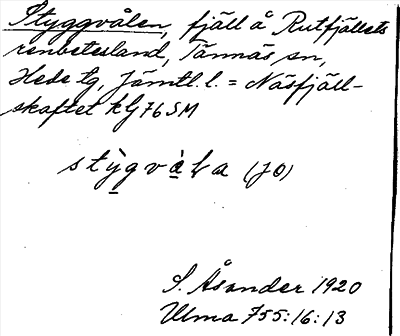 Styggvålen, fjäll å Rutfjällets
renbetesland, Tännäs sn,
Hede tg, Jämtl. l. = Näsfjäll-
skaftet kG76SM
stỳgvà̤ɫa (JO)
S. Åsander 1920
Ulma 755:16:13